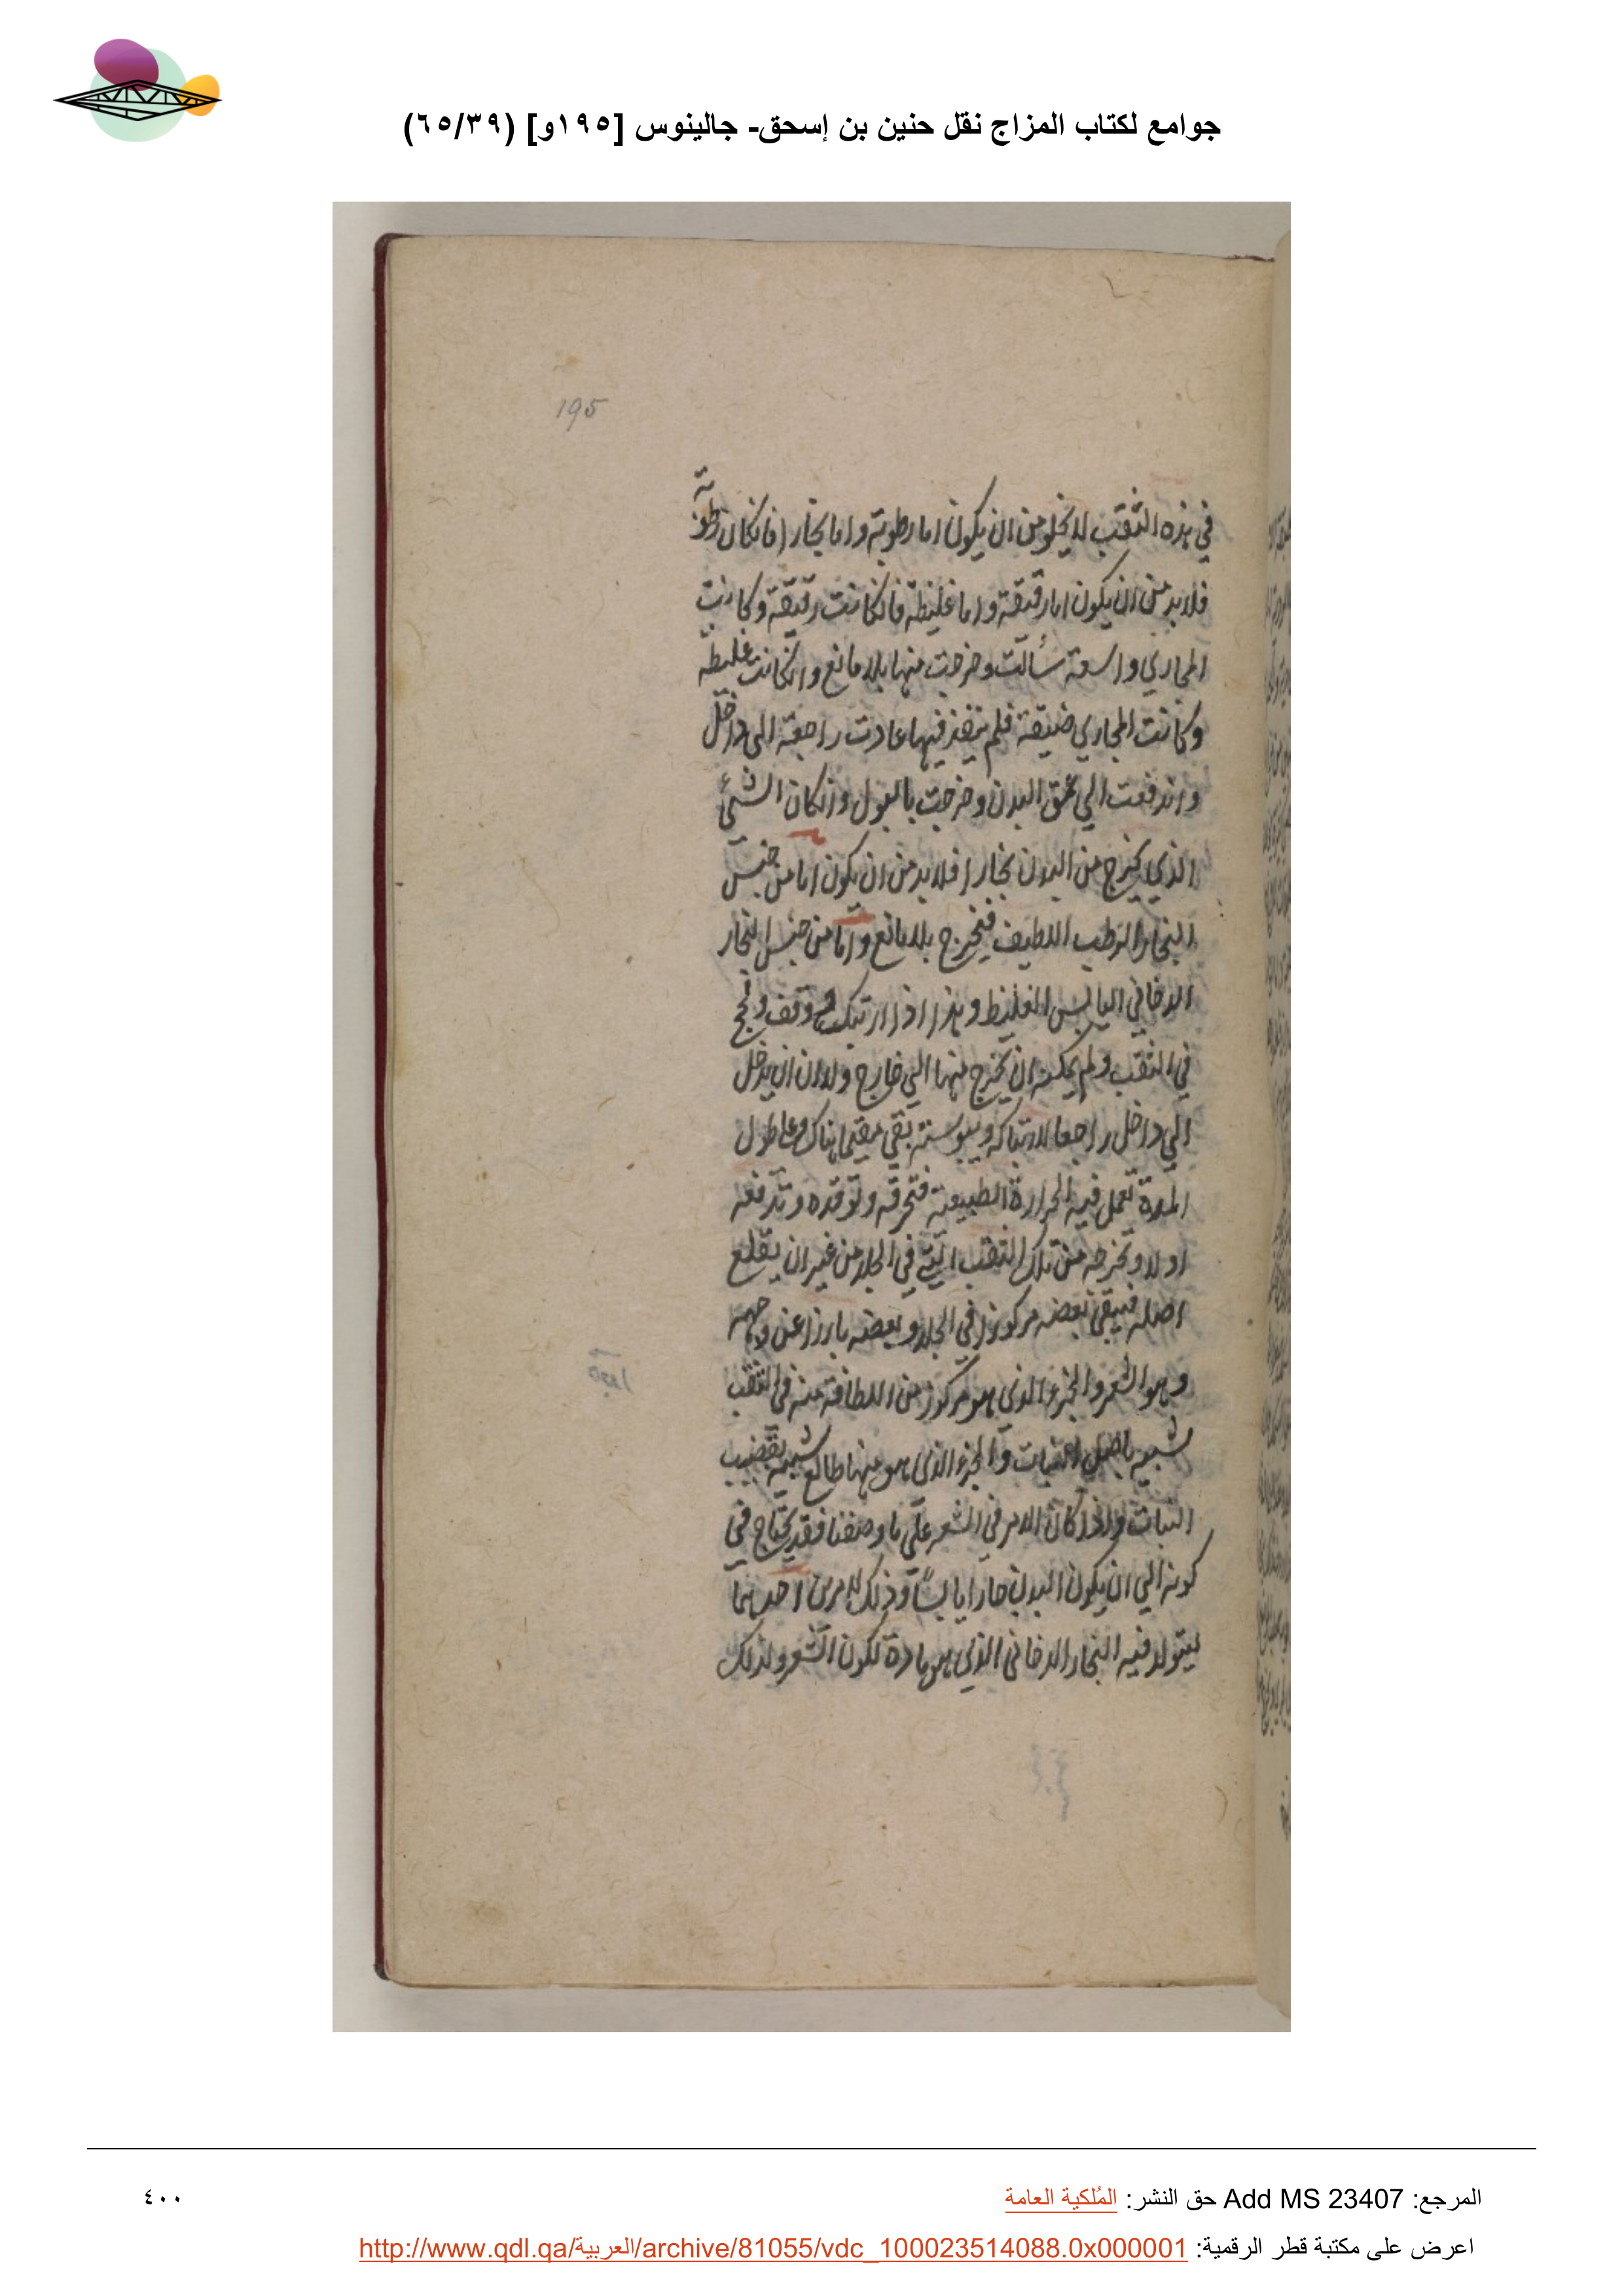 جوامع لكتاب المزاج نقل حنين بن إسحق- جالينوس [١٩٥و] (٦٥/٣٩)
195
في هذه الثقب لا يخلو من ان يكون اما رطوبة واما بخارا فانكان رطوبة
فلا بد من ان يكون اما رقيقة واما غليظة فانكانت رقيقة وكانت
المجاري واسعة سألت وخرجت منها بلا مانع وانكانت غليظة
وكانت المجاري ضيقة فلم تنفذ فيها عادت راجعة الى داخل
واندفعت الي عمق البدن وخرجت بالبول وانكان الشئ
الذي يخرج من البدن بخارا فلا بد من ان يكون اما من جنس
البخار الرطب اللطيف فيخرج بلا مانع واما من جنس البخار
الدخاني اليابس الغليظ وهذا اذا ارتبك ووقف ولحج
في الثقب ولم يمكنه ان يخرج منها الي خارج ولا ان يدخل
الي داخل راجعا لارتباكه ويبوسته بقي مقيما هناك وعلى طول
المدة تعمل فيه الحرارة الطبيعية فتحرقه وتوقده وتدفعه
اولا وتخرجه من تلك الثقب التي في الجلد من غير ان يقلع
اصله فيبقى بعضه مركوزا في الجلد وبعضه بارزا عن وجهه
وهو الشعر والجزء الذي هو مركوز من اللطافة منه في الثقب
شبيه باصل النبات والجزء الذي هو منها طالع شبيه بقضيب
النبات واذا كان الامر في الشعر علي ما وصفنا فقد يحتاج في
كونه الي ان يكون البدن حارا يابسًا وذلك لامرين احدهما
ليتولد فيه البخار الدخاني الذي هو مادة لكون الشعر ولذلك
المرجع: Add MS 23407 حق النشر: المُلكية العامة
٤٠٠
اعرض على مكتبة قطر الرقمية: http://www.qdl.qa/العربية/archive/81055/vdc_100023514088.0x000001